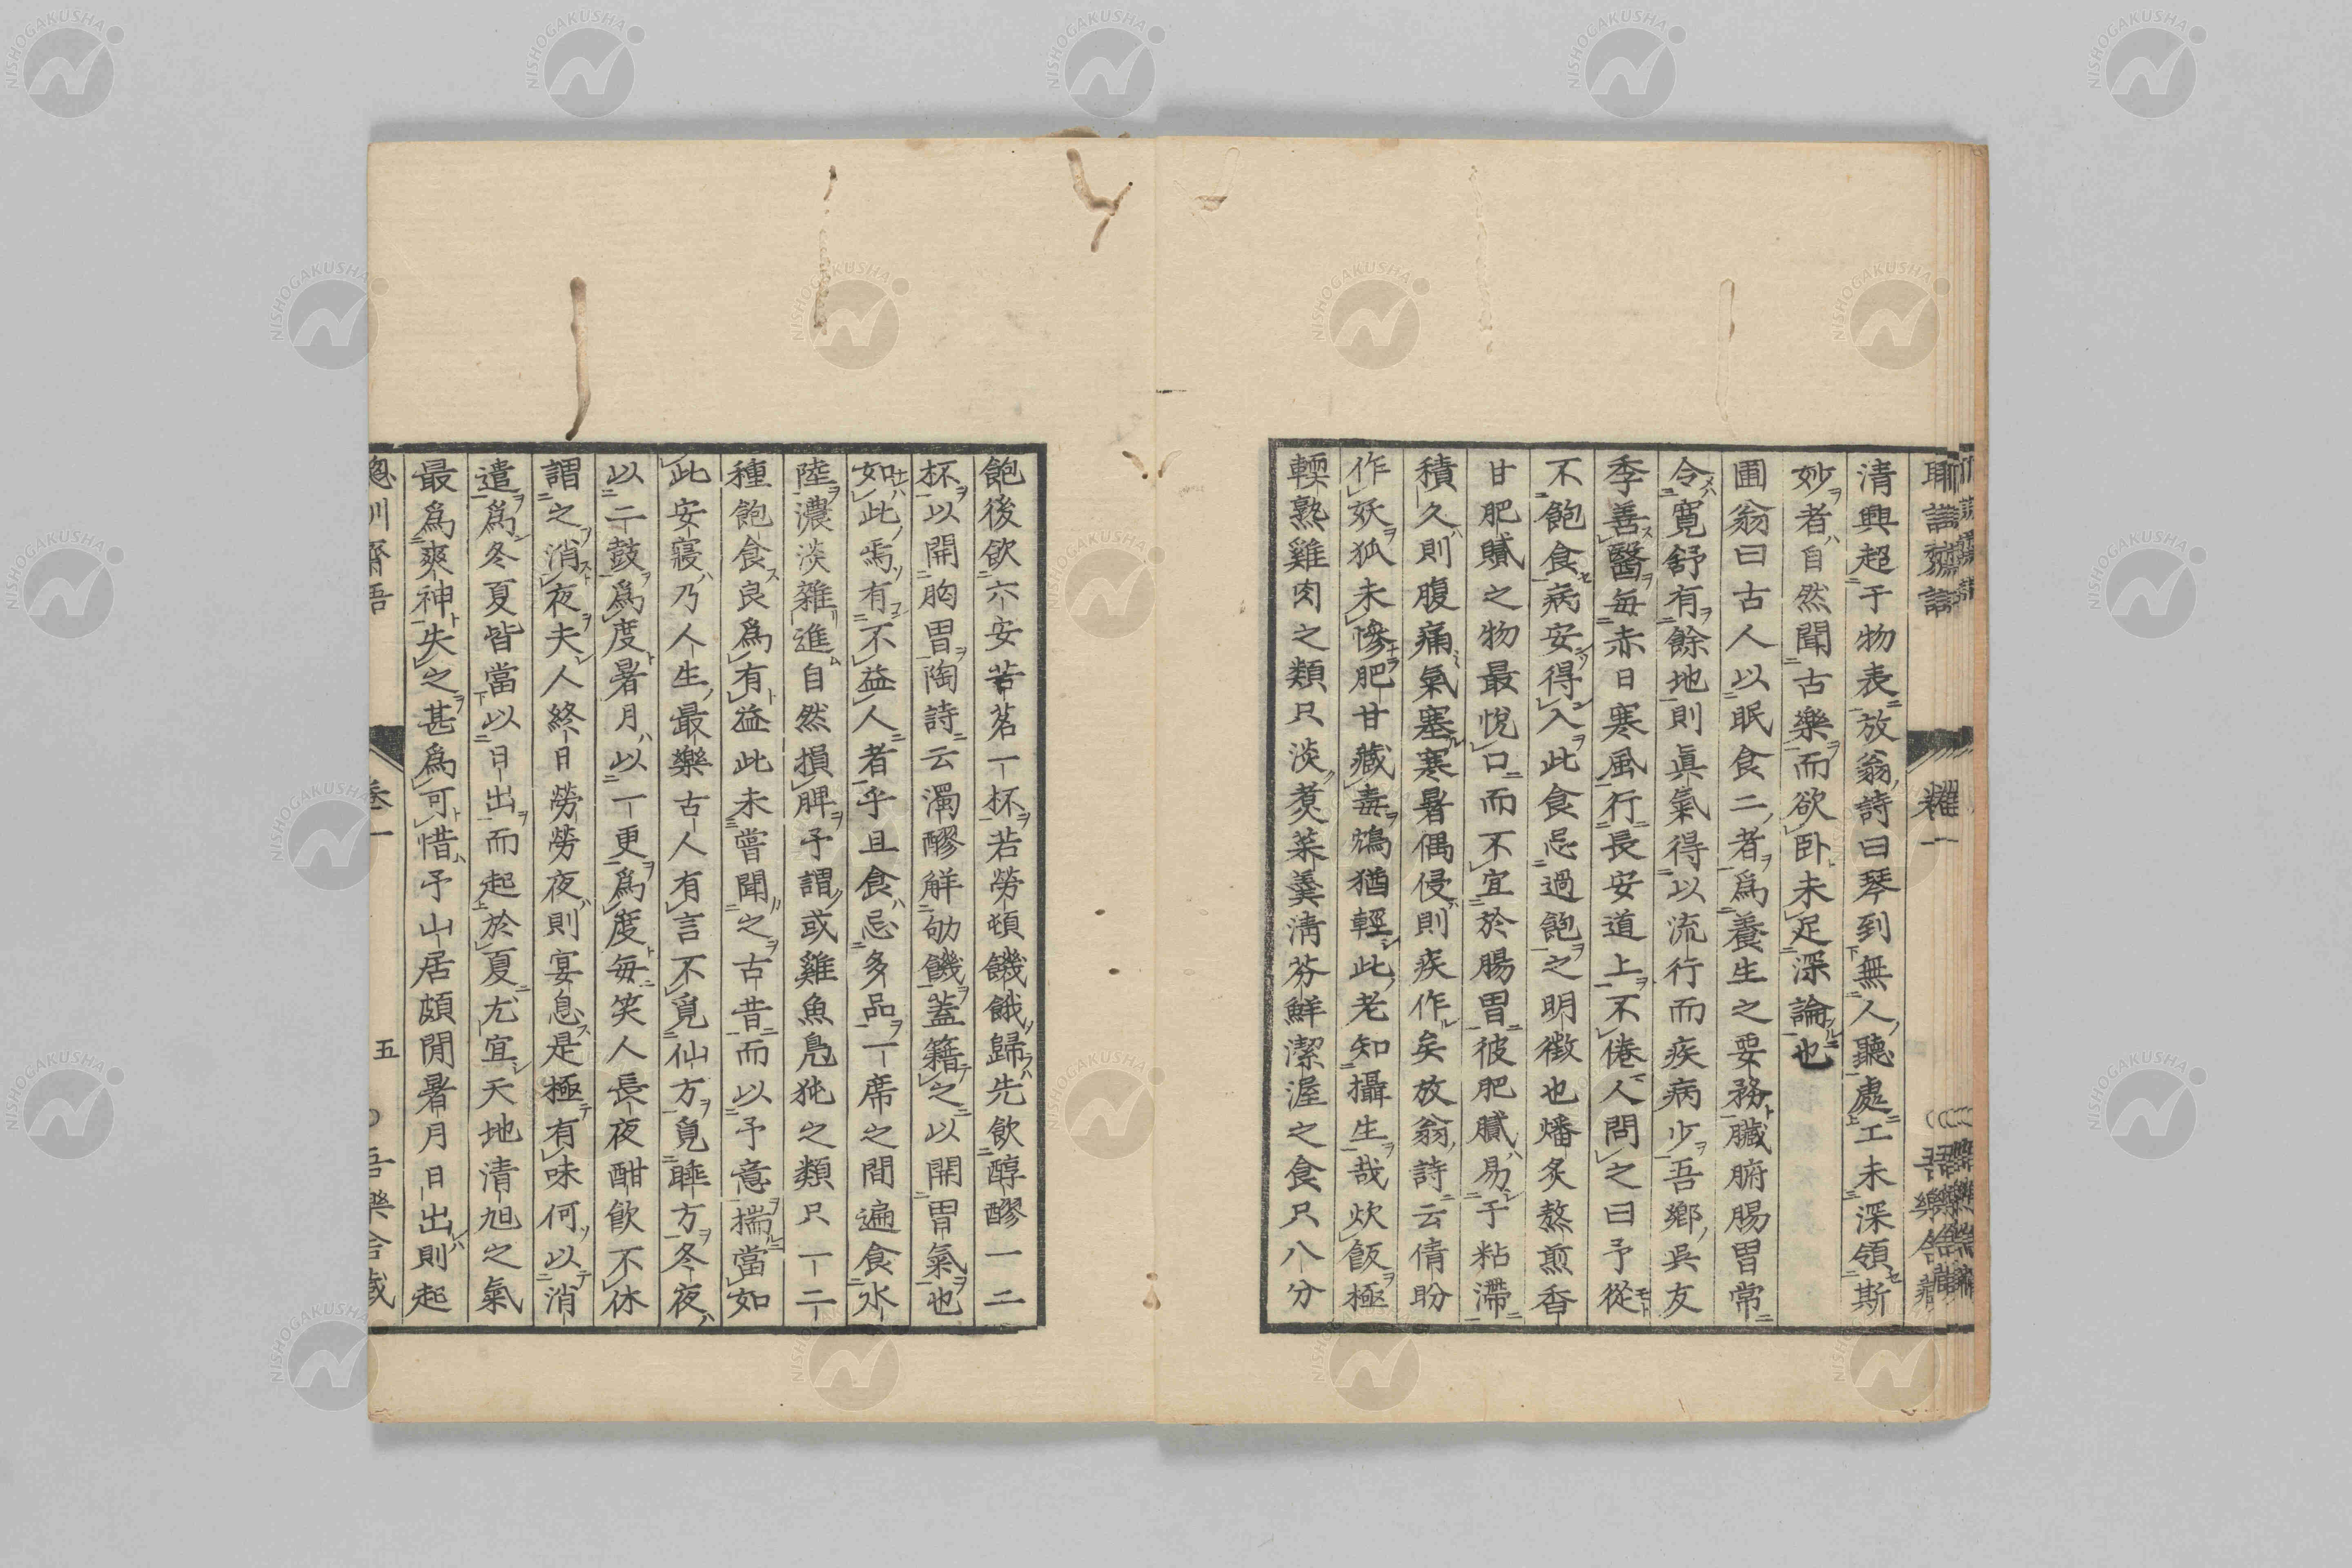 清興超于物表放翁詩曰琴到無人聽處工未深領斯
妙者自然聞古樂而欲卧未足深論也
圃翁曰古人以眠食二者爲養生之要務臟腑腸胃常
令寬舒有餘地則眞氣得以流行而疾病少吾鄉吳友
季善醫每赤日寒風行長安道上不倦人問之曰予從
不飽食病安得入此食忌過飽之明徵也燔炙熬煎香
甘肥膩之物最悅口而不宜於腸胃彼肥膩易于粘滯
積久則腹痛氣塞寒暑偶侵則疾作矣放翁詩云倩盼
作妖狐未慘肥甘藏毒鴆猶輕此老知攝生哉炊飯極
輭熟雞肉之類只淡煑菜羹清芬鮮潔渥之食只八分
飽後飲六安苦茗一杯若勞頓饑餓歸先飲醇醪一二
杯以開胸胃陶詩云濁醪解劬饑蓋籍之以開胃氣也
如此焉有不益人者乎且食忌多品一席之間遍食水
陸濃淡雜進自然損脾予謂或雞魚鳧㹠之類只一二
種飽食良爲有益此未嘗聞之古昔而以予意揣當如
此安寢乃人生最樂古人有言不覓仙方覓睡方冬夜
以二鼓爲度暑月以一更爲度每笑人長夜酣飲不休
謂之消夜夫人終日勞勞夜則宴息是極有味何以消
遣爲冬夏皆當以日出而起於夏尤宜天地清旭之氣
最爲爽神失之甚爲可惜予山居頗閒暑月日出則起
聰訓齋語 卷一 五 吾樂舍藏
NISHOGAKUSHA